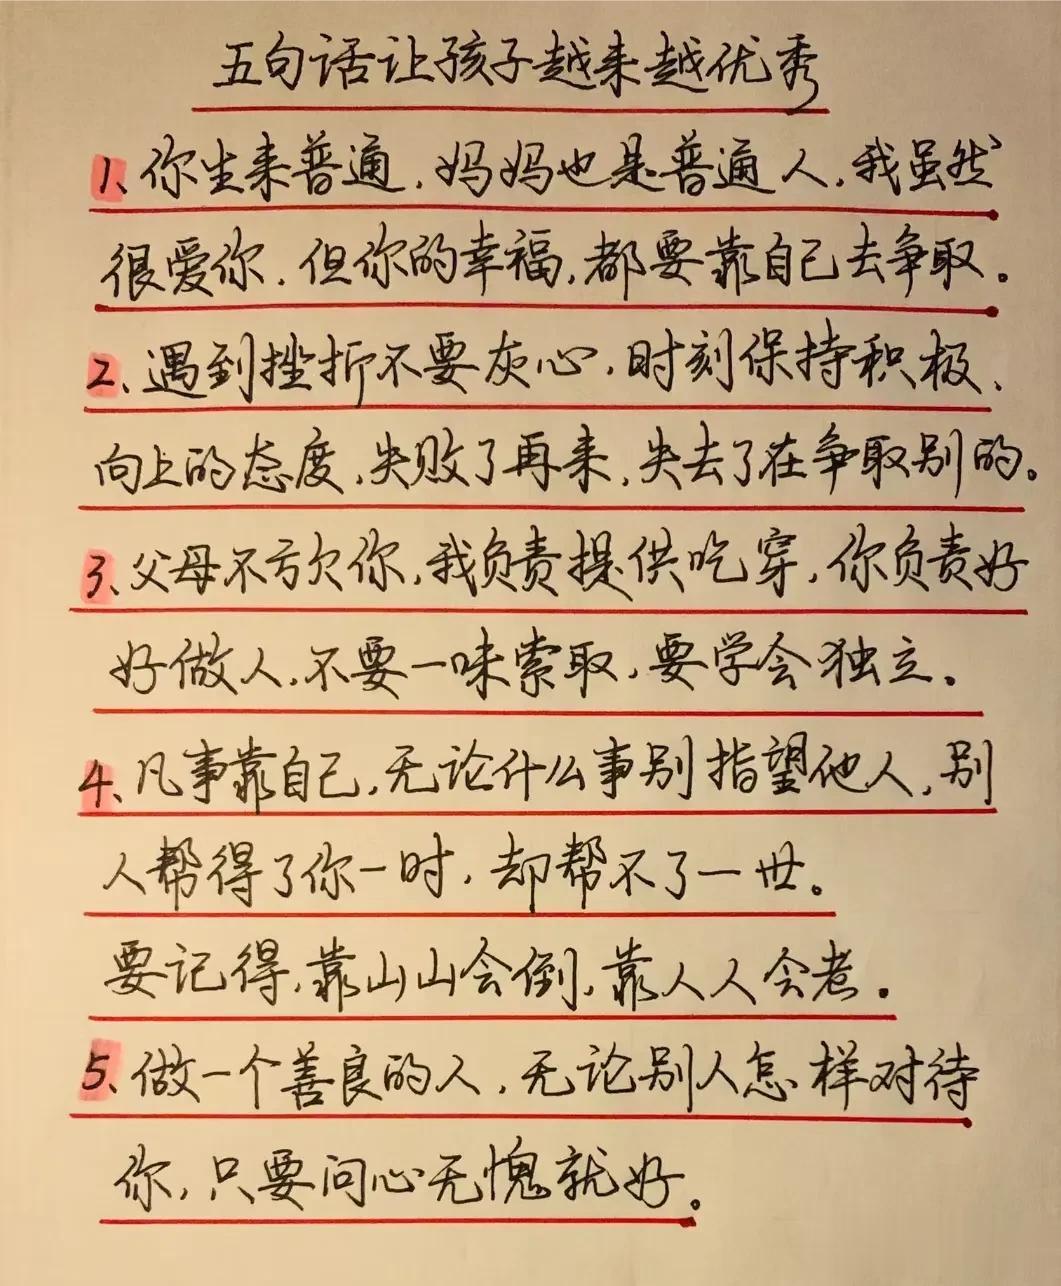 五句话让孩子越来越优秀
1、你生来普通,妈妈也是普通人,我虽然
很爱你,但你的幸福,都要靠自己去争取。
2、遇到挫折不要灰心,时刻保持积极、
向上的态度,失败了再来,失去了在争取别的。
3、父母不亏欠你,我负责提供吃穿,你负责好
好做人,不要一味索取,要学会独立。
4、凡事靠自己,无论什么事别指望他人,别
人帮得了你一时,却帮不了一世。
要记得,靠山山会倒,靠人人会老。
5、做一个善良的人,无论别人怎样对待
你,只要问心无愧就好。